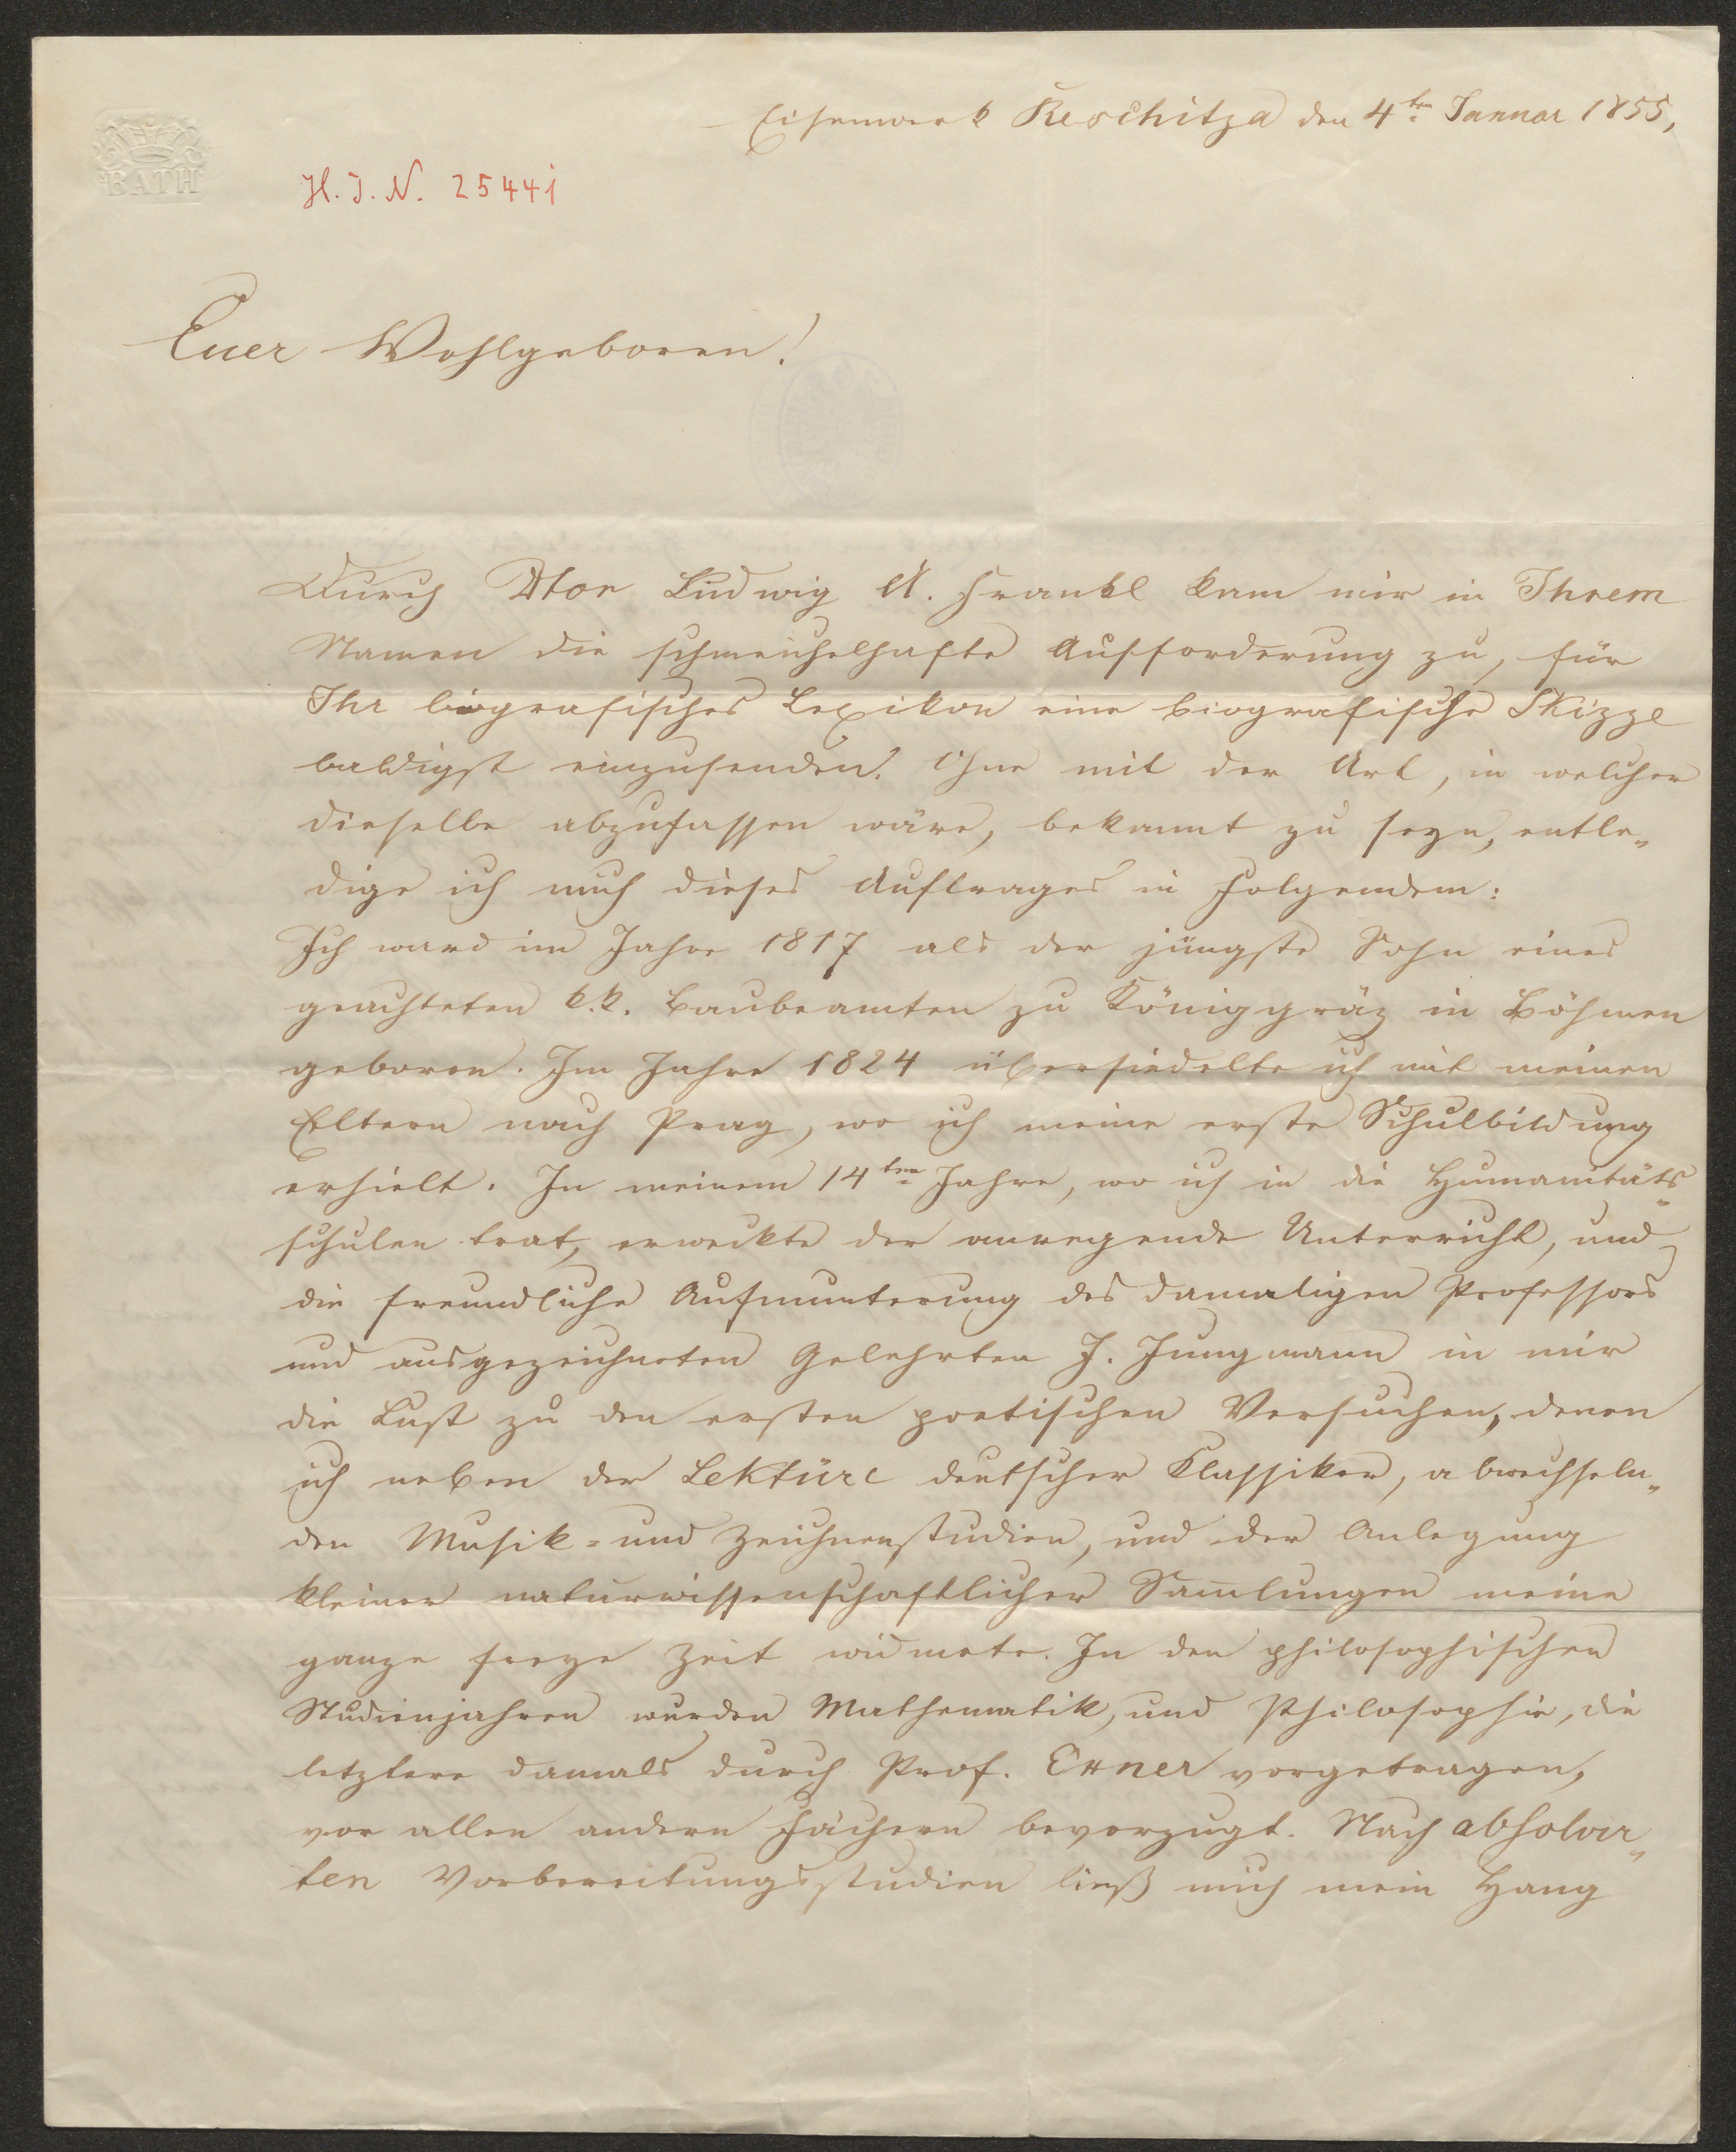 Eisenwerk Reschitza den 4ten Januar 1855,
BATH
H. I. N. 25441
Euer Wohlgeboren!
Durch Dtor Ludwig A. Frankl kam mir in Ihrem
Namen die schmeichelhafte Aufforderung zu, für
Ihr biografisches Lexikon eine biografische Skizze
baldigst einzusenden. Ohne mit der Art, in welcher
dieselbe abzufassen wäre, bekannt zu seyn, entle„
dige ich mich dieses Auftrages in Folgendem:
Ich ward im Jahre 1817 als der jüngste Sohn eines
geachteten k.k. Baubeamten zu Königgräz in Böhmen
geboren. Im Jahre 1824 übersiedelte ich mit meinen
Eltern nach Prag, wo ich meine erste Schulbildung
erhielt. In meinem 14ten Jahre, wo ich in die Humanitäts„
schulen trat, erweckte der anregende Unterricht, und
die freundliche Aufmunterung des damaligen Professors
und ausgezeichneten Gelehrten J. Jungmann in mir
die Lust zu den ersten poetischen Versuchen, denen
ich neben der Lektüre deutscher Klassiker, abwechseln„
den Musik- und Zeichnenstudien, und der Anlegung
kleiner naturwissenschaftlicher Samlungen meine
ganze freye Zeit widmete. In den philosophischen
Studienjahren wurden Mathematik, und Philosophie, die
letztere damals durch Prof. Exner vorgetragen,
vor allen andern Fächern bevorzugt. Nach absolvir„
ten Vorbereitungsstudien ließ mich mein Hang